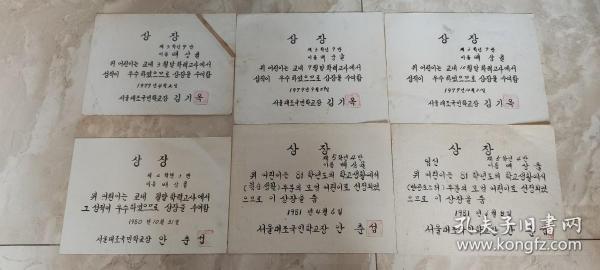 상 장
이름 배 상 훈
위 어린이는 교내 3월말 학력고사에서
성적이 우수하였으므로 상장을 수여함
1979
서울대조국민학교장 김 기 옥
상 장
이름 배 상 훈
위 어린이는 교내 9월말 학력고사에서
성적이 우수하였으므로 상장을 수여함
1979년 9월
서울대조국민학교장 김 기 옥
상 장
이름 배 상 훈
위 어린이는 교내 10월말 학력고사에서
성적이 우수하였으므로 상장을 수여함
1979년
서울대조국민학교장 김 기 옥
상 장
이름 배 상 훈
위 어린이는 교내 월말 학력고사에서
그 성적이 우수하였으므로 상장을 수여함
1980년 10월 31일
서울대조국민학교장 안 춘 섭
상 장
이름 배 상 훈
위 어린이는 81학년도의 학교생활에서
부문의 모범 어린이로 선정되었
으므로 이 상장을 줌
1981년 4월 6일
서울대조국민학교장 안 춘 섭
상 장
이름 배 상 훈
위 어린이는 81학년도의 학교생활에서
부문의 모범 어린이로 선정되었
으므로 이 상장을 줌
1981
서울대조국민학교장 안 춘 섭
孔夫子旧书网
www.kongfz.com